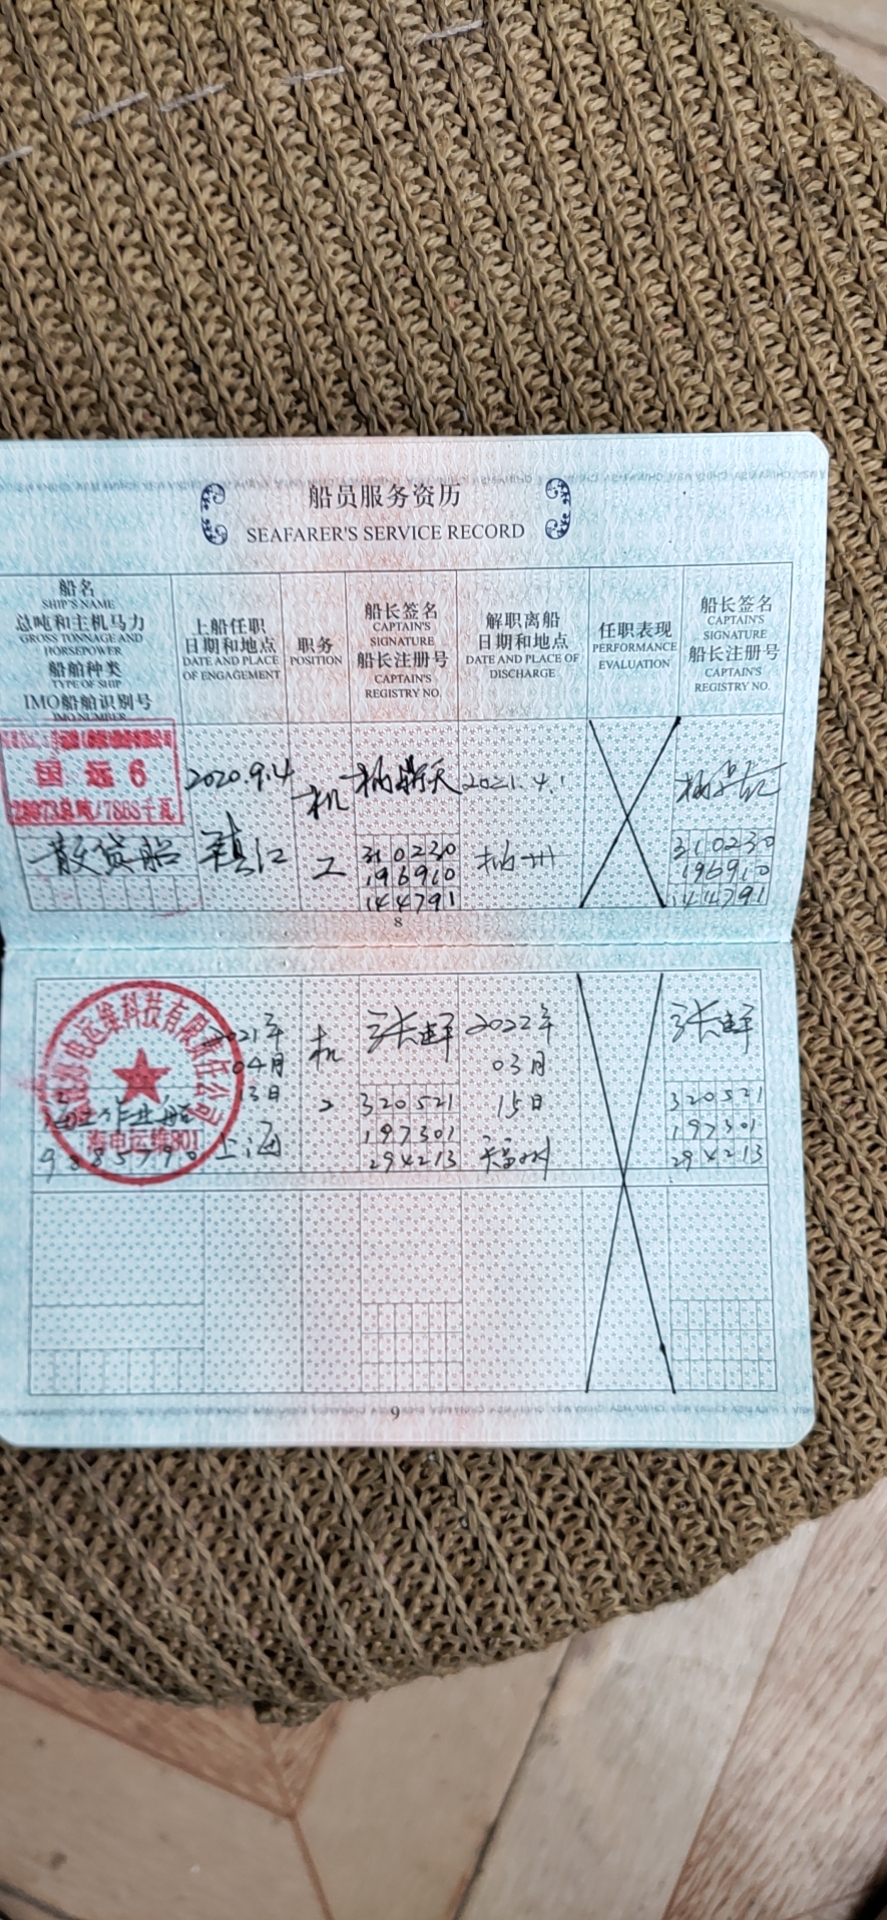 船员服务资历
SEAFARER'S SERVICE RECORD
船名
SHIP'S NAME
总吨和主机马力
GROSS TONNAGE AND
HORSEPOWER
船舶种类
TYPE OF SHIP
IMO船舶识别号
IMO NUMBER
上船任职
日期和地点
DATE AND PLACE
OF ENGAGEMENT
职务
POSITION
船长签名
CAPTAIN'S
SIGNATURE
船长注册号
CAPTAIN'S
REGISTRY NO.
解职离船
日期和地点
DATE AND PLACE OF
DISCHARGE
任职表现
PERFORMANCE
EVALUATION
船长签名
CAPTAIN'S
SIGNATURE
船长注册号
CAPTAIN'S
REGISTRY NO.
国远6
散货船
2020.9.4
镇江
机
工
310230
196910
144791
2021.4.1
310230
196910
144791
8
电运维科技有限责任公司
海上作业船
海电运维801
2021年
04月
13日
上海
机
工
320521
197301
294213
2022年
03月
15日
福州
320521
197301
294213
9